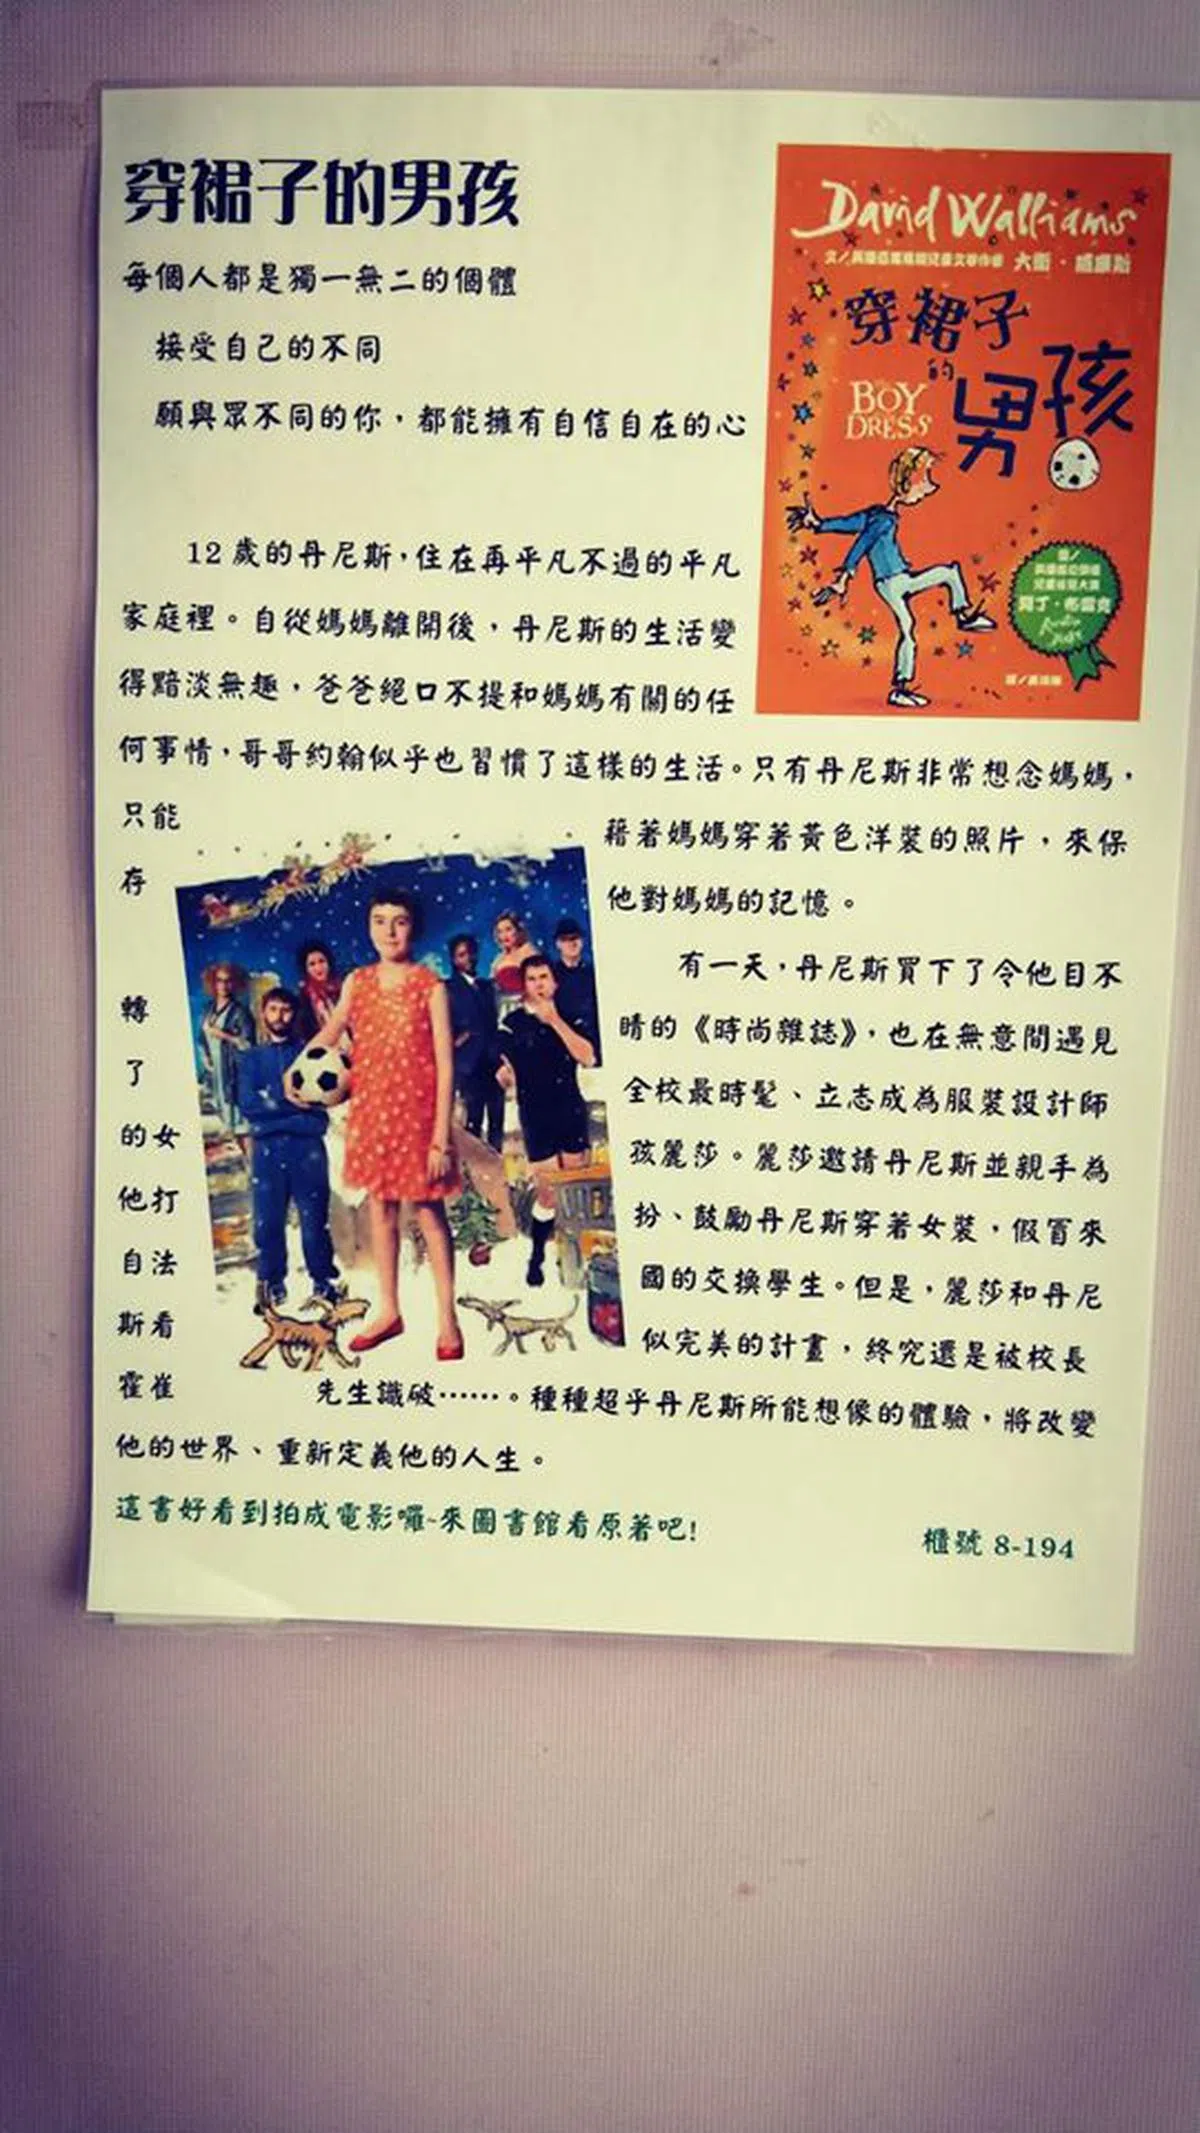 穿裙子的男孩
每個人都是獨一無二的個體
接受自己的不同
願與眾不同的你，都能擁有自信自在的心
David Walliams
大衛·威廉斯
穿裙子
的男孩
BOY
DRESS
12 歲的丹尼斯，住在再平凡不過的平凡
家庭裡。自從媽媽離開後，丹尼斯的生活變
得黯淡無趣，爸爸絕口不提和媽媽有關的任
何事情，哥哥約翰似乎也習慣了這樣的生活。只有丹尼斯非常想念媽媽，
只能 藉著媽媽穿著黃色洋裝的照片，來保
存 他對媽媽的記憶。
有一天，丹尼斯買下了令他目不
轉 睛的《時尚雜誌》，也在無意間遇見
了 全校最時髦、立志成為服裝設計師
的女 孩麗莎。麗莎邀請丹尼斯並親手為
他打 扮、鼓勵丹尼斯穿著女裝，假冒來
自法 國的交換學生。但是，麗莎和丹尼
斯看 似完美的計畫，終究還是被校長
霍崔 先生識破……。種種超乎丹尼斯所能想像的體驗，將改變
他的世界、重新定義他的人生。
這書好看到拍成電影囉~來圖書館看原著吧!
櫃號 8-194